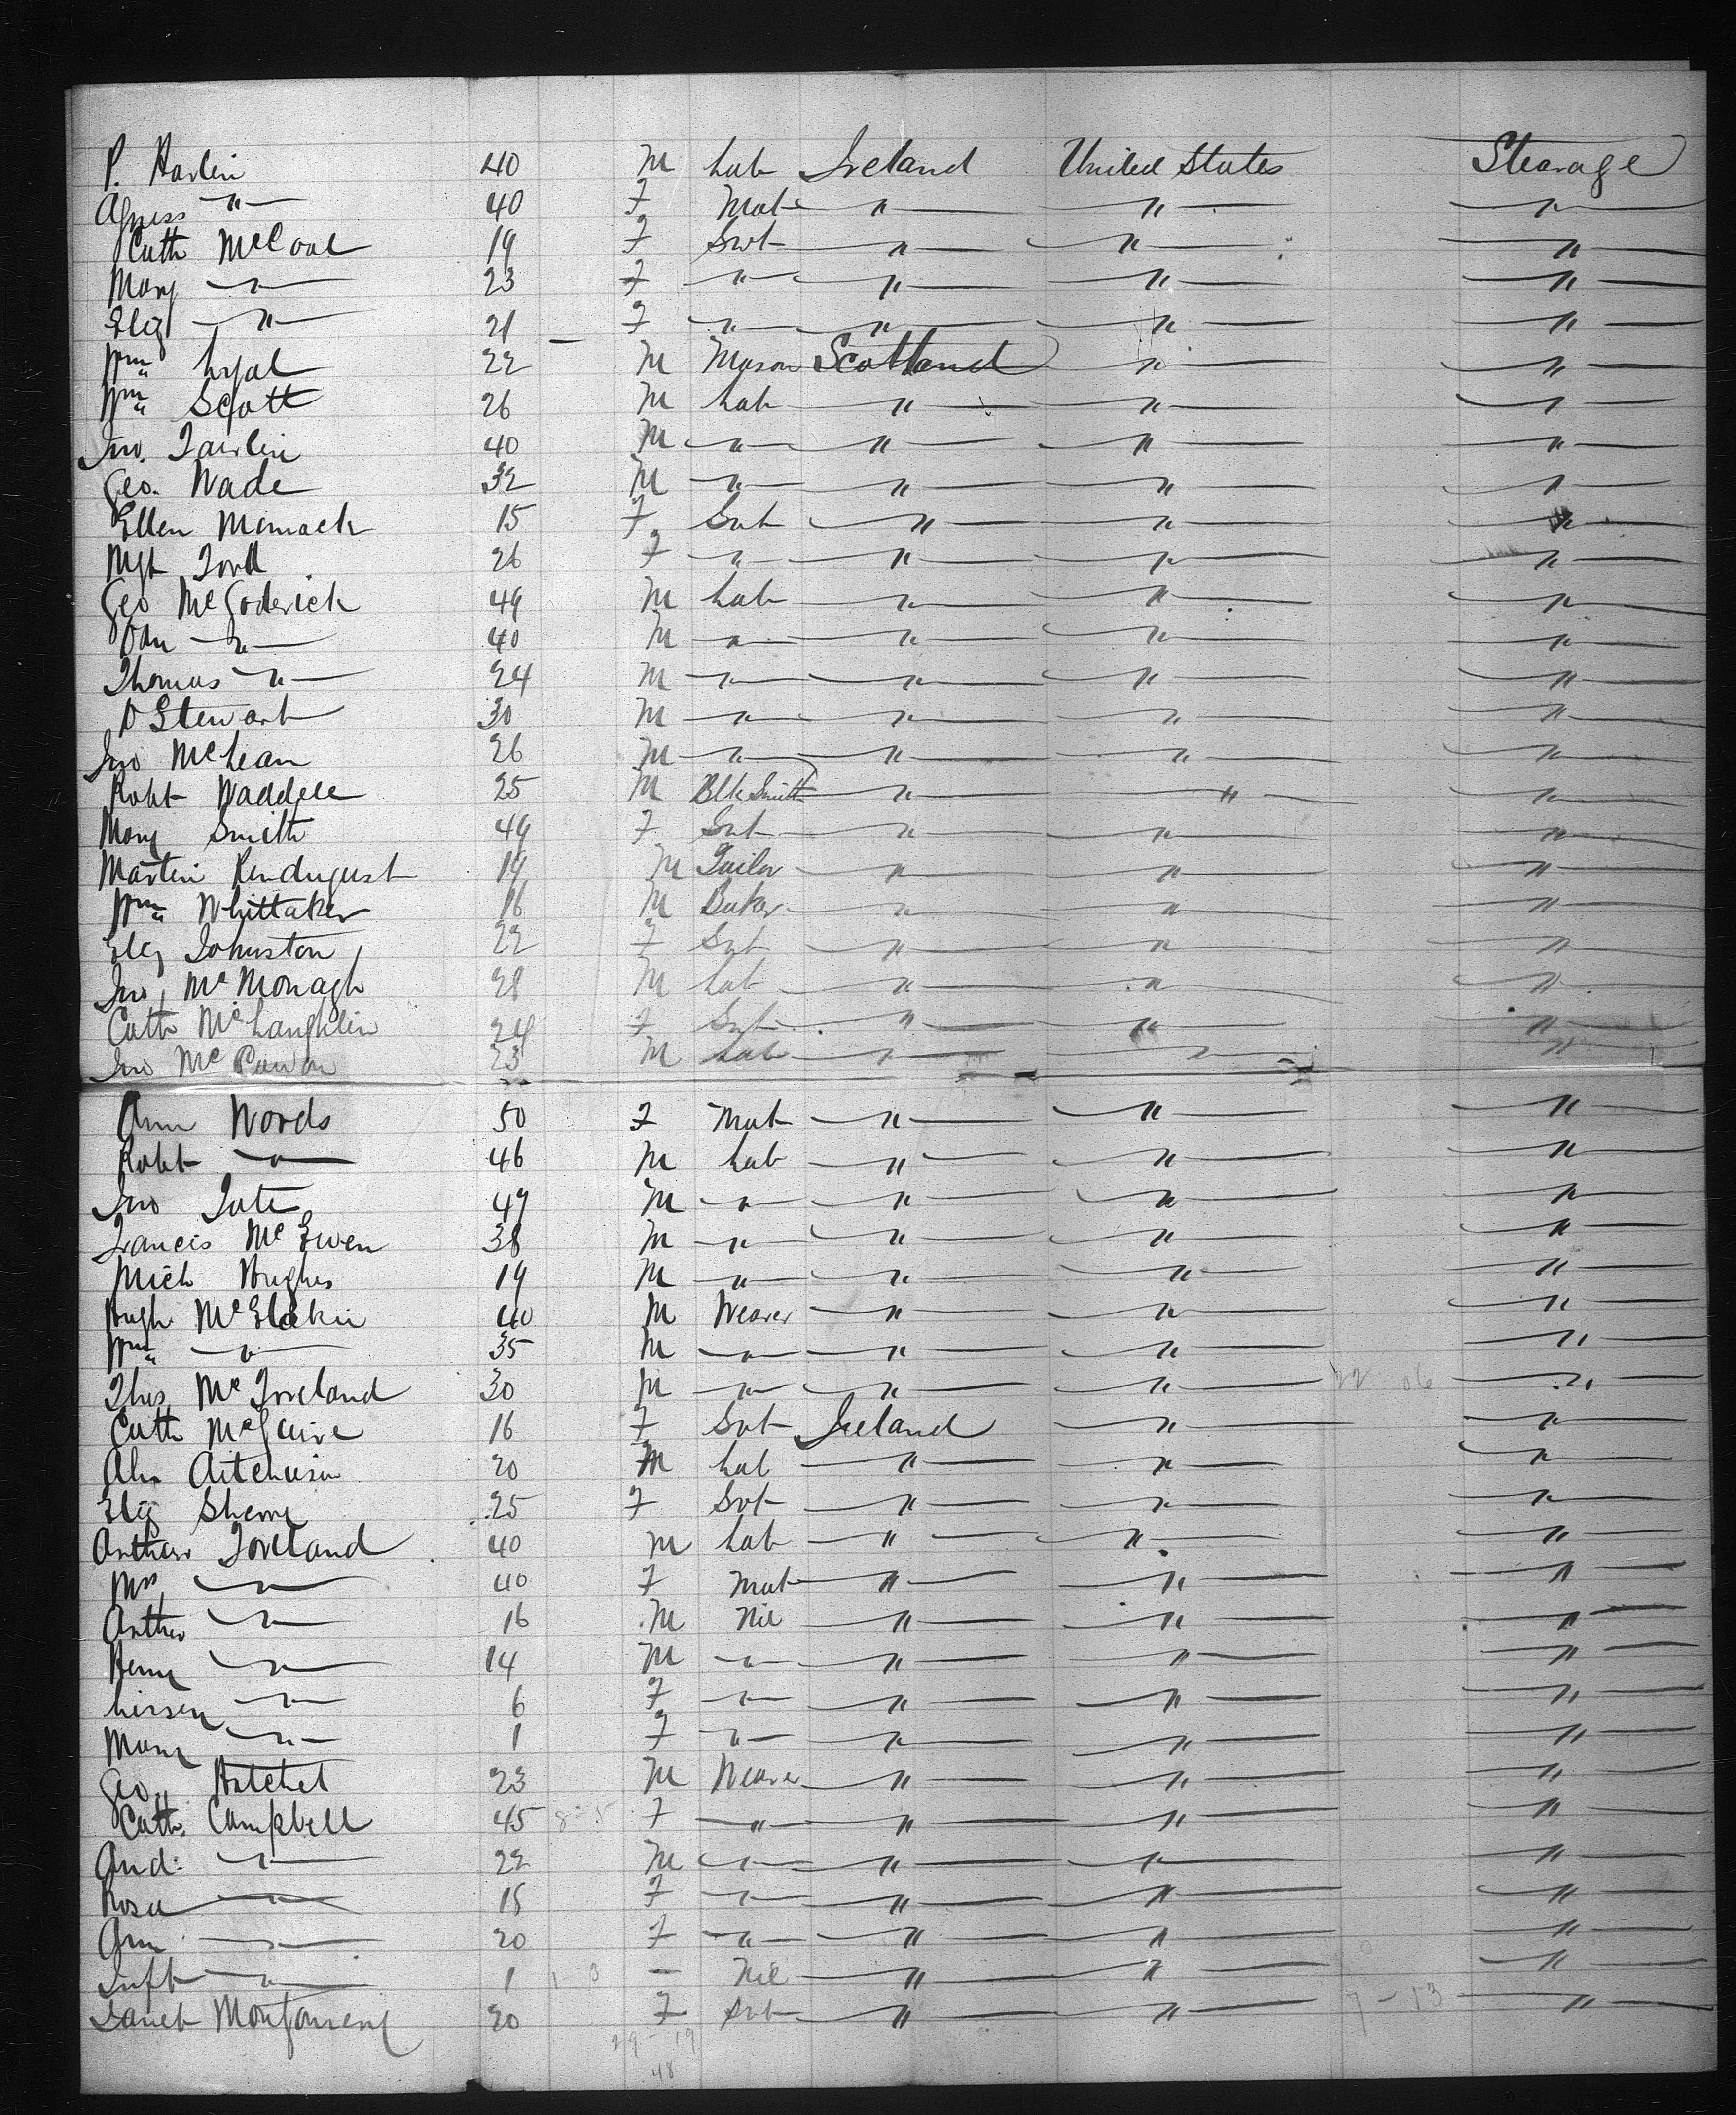 P. Harlin 40 M Lab Ireland United States Stearage
Agness " 40 F Mat " " "
Cath McCool 19 F Svt " " "
Mary " 23 F " " " "
Eliz " 21 F " " " "
Wm Lyal 22 M Mason Scotland " "
Wm Scott 26 M Lab " " "
Jno. 40 M " " " "
Geo. Wade 32 M " " " "
Ellen 15 F Svt " " "
Mgt 26 F " " " "
Geo McGoderick 49 M Lab " " "
Dan " 40 M " " " "
Thomas " 24 M " " " "
D Stewart 30 M " " " "
Jno McLean 26 M " " " "
Robt Waddell 25 M Blk Smith " " "
Mary Smith 49 F Svt " " "
Martin 19 M Tailor " " "
Wm Whittaker 16 M Baker " " "
Eliz Johnston 22 F Svt " " "
Jno McMonagh 28 M Lab " " "
Cath McLaughlin 24 F Svt " " "
Jno 23 M Lab " " "
Ann Words 50 F Mat " " "
Robt " 46 M Lab " " "
Jno Tate 47 M " " " "
Francis McEwen 38 M " " " "
Mich Hughes 19 M " " " "
Hugh 40 M Weaver " " "
Wm " 35 M " " " "
Thos McForeland 30 M " " " 22 06 "
Cath McGuire 16 F Svt Ireland " "
Alx Aitchison 20 M Lab " " "
Eliz 25 F Svt " " "
Arthur Foreland 40 M Lab " " "
Mrs " 40 F Mat " " "
Arthur " 16 M Nil " " "
Henry " 14 M " " " "
" 6 F " " " "
Mary " 1 F " " " "
Geo. Hatchet 23 M Weaver " " "
Cath. Campbell 45 8 5 F " " " "
And: " 22 M " " " "
Rosa " 18 F " " " "
Ann " 20 F " " " "
Inft " 1 1 3 – Nil " " "
Janet Montgomery 20 F Svt " " 7-13 "
29-19
48